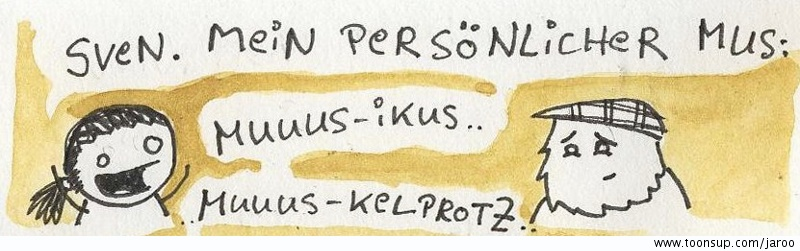 SVEN. MEIN PERSÖNLICHER MUS:
MUUUS-IKUS..
MUUUS-KELPROTZ..
www.toonsup.com/jaroo